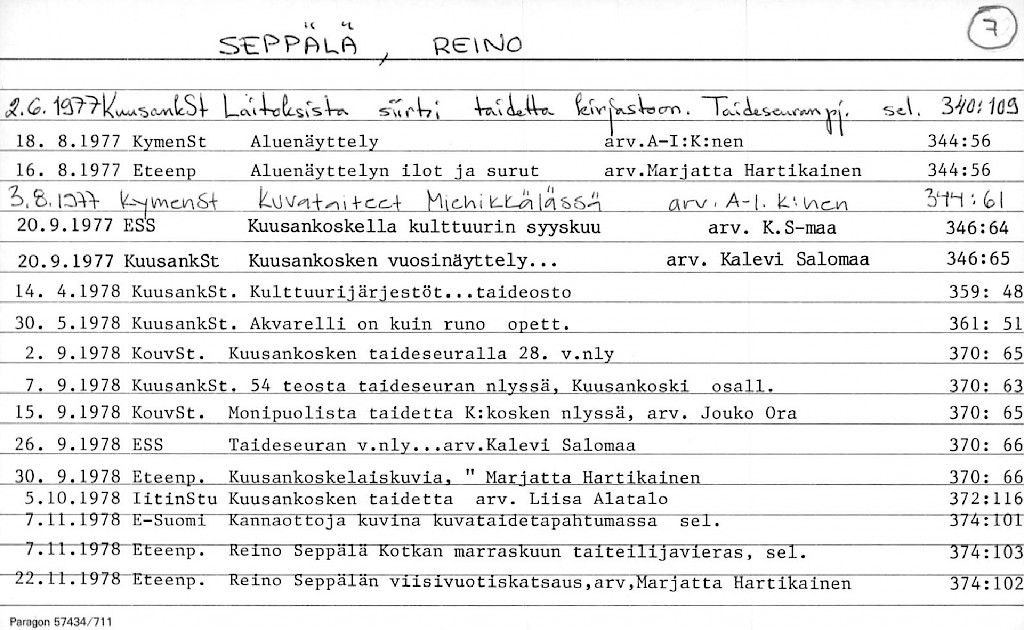 SEPPÄLÄ, REINO 7
2.6.1977 KuusankSt Laitoksista siirtyi taidetta kirjastoon. Taideseuran pj. sel. 340:109
18. 8.1977 KymenSt Aluenäyttely arv.A-I:K:nen 344:56
16. 8.1977 Eteenp Aluenäyttelyn ilot ja surut arv.Marjatta Hartikainen 344:56
3.8.1977 KymenSt Kuvataiteet Miehikkälässä arv. A-I. K:nen 344:61
20.9.1977 ESS Kuusankoskella kulttuurin syyskuu arv. K.S-maa 346:64
20.9.1977 KuusankSt Kuusankosken vuosinäyttely... arv. Kalevi Salomaa 346:65
14. 4.1978 KuusankSt. Kulttuurijärjestöt...taideosto 359: 48
30. 5.1978 KuusankSt. Akvarelli on kuin runo opett. 361: 51
2. 9.1978 KouvSt. Kuusankosken taideseuralla 28. v.nly 370: 65
7. 9.1978 KuusankSt. 54 teosta taideseuran nlyssä, Kuusankoski osall. 370: 63
15. 9.1978 KouvSt. Monipuolista taidetta K:kosken nlyssä, arv. Jouko Ora 370: 65
26. 9.1978 ESS Taideseuran v.nly...arv.Kalevi Salomaa 370: 66
30. 9.1978 Eteenp. Kuusankoskelaiskuvia, " Marjatta Hartikainen 370: 66
5.10.1978 IitinStu Kuusankosken taidetta arv. Liisa Alatalo 372:116
7.11.1978 E-Suomi Kannaottoja kuvina kuvataidetapahtumassa sel. 374:101
7.11.1978 Eteenp. Reino Seppälä Kotkan marraskuun taiteilijavieras, sel. 374:103
22.11.1978 Eteenp. Reino Seppälän viisivuotiskatsaus,arv,Marjatta Hartikainen 374:102
Paragon 57434/711